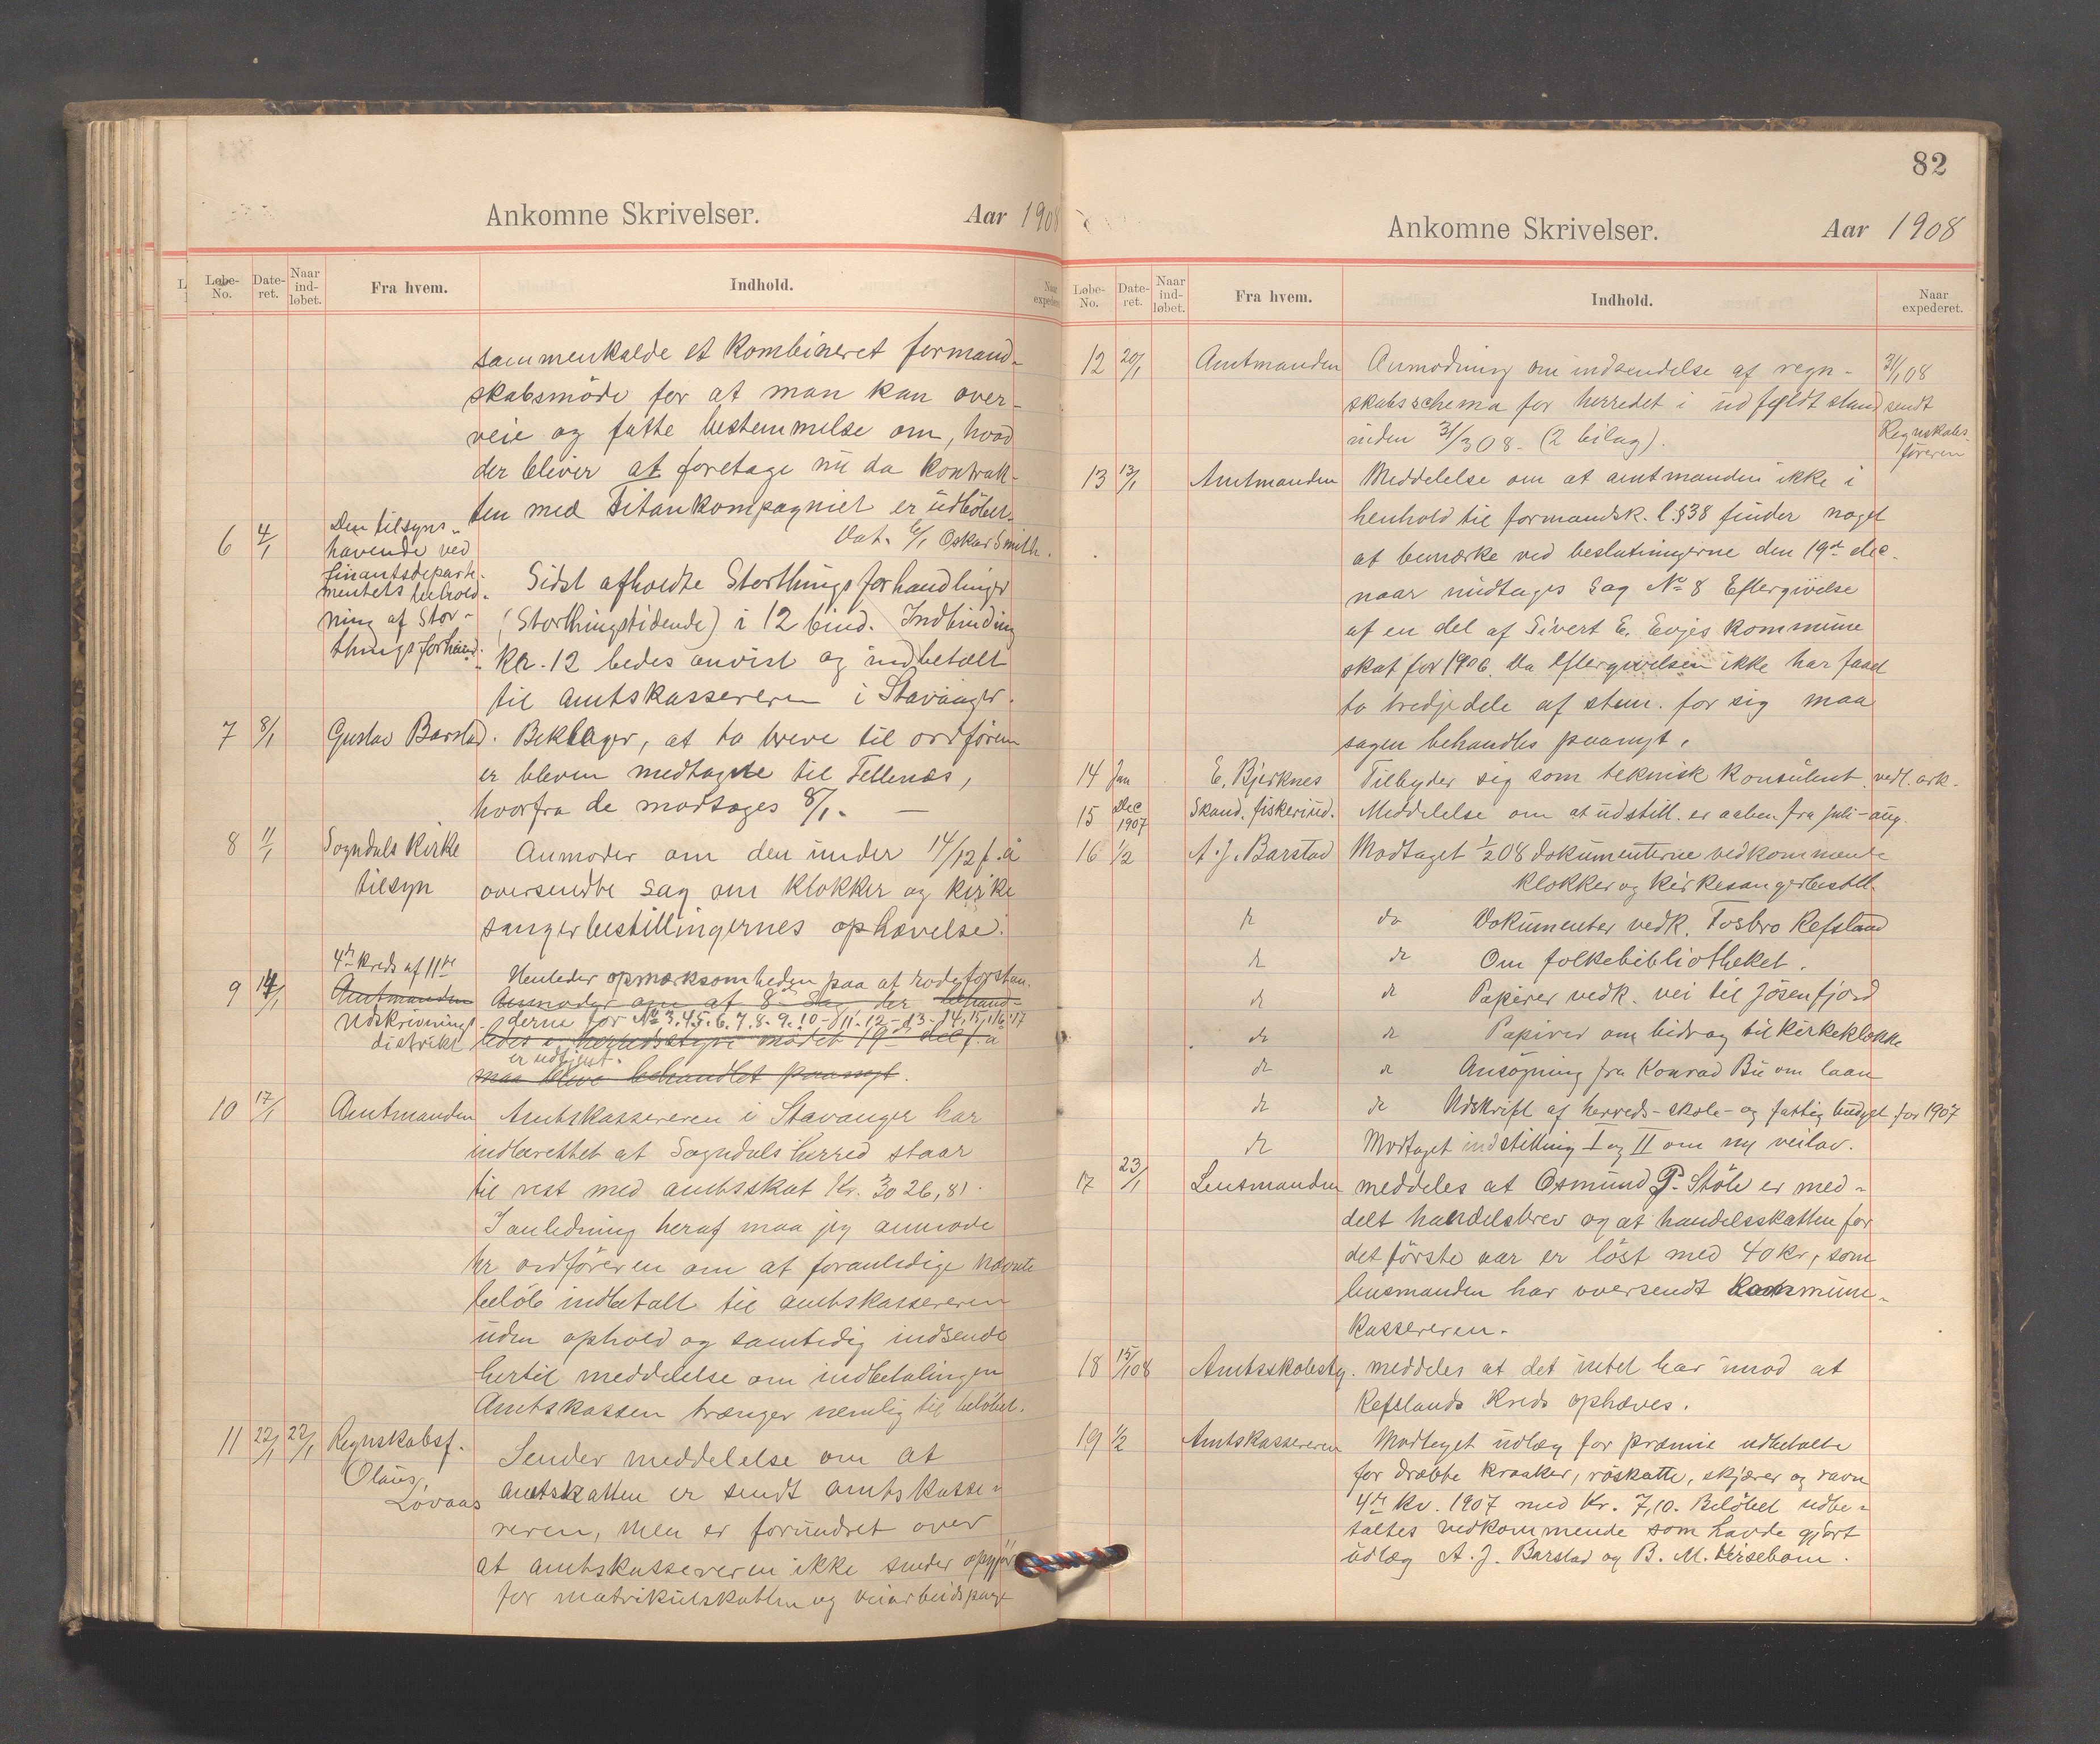 Ankomne Skrivelser. Aar 1908
Løbe-No. Date-ret. Naar ind-løbet. Fra hvem. Indhold. Naar expederet
sammenkalde et kombineret formand-
skabsmöde for at man kan over-
veie og fatte bestemmelse om, hvad
der bliver at foretage nu da kontrak-
ten med Titankompagniet er udlöbet.
Dat. 6/1 Oskar Smith.
6 4/1 Den tilsyns-
havende ved
finantsdeparte-
mentets behold-
ning af Stor-
thingsforhand.
Sidst afholdte Storthingsforhandlinger
(Storthingstidende) i 12 bind. Indbinding
Kr. 12 bedes anvist og indbetalt
til amtskassereren i Stavanger.
7 8/1 Gustav Barstad. Beklager, at to breve til ordføreren
er bleven medtagne til Tellenæs,
hvorfra de modtoges 8/1. —
8 11/1 Sogndals Kirke
tilsyn
Anmoder om den under 14/12 f.å
oversendte sag om klokker og kirke
sangerbestillingernes ophævelse.
9 14/1 4de kreds af 11te
Amtmanden
Udskrivnings-
distrikt
Henleder opmærksomheden paa at rodeforstan-
Anmoder om at 8 Sag der behand-
derne for No 3.4.5.6.7.8.9.10-11-12-13-14,15,16,17
ledes i herredsstyre mødet 19de dec f.a
er udtjent.
maa blive behandlet paanyt.
10 17/1 Amtmanden Amtskassereren i Stavanger har
indberettet at Sogndals herred staar
til rest med amtsskat Kr. 3026,81.
I anledning heraf maa jeg anmode
hr ordföreren om at foranledige nævnte
belöb indbetalt til amtskassereren
uden ophold og samtidig indsende
hertil meddelelse om indbetalingen
Amtskassen trænger nemlig til belöbet.
11 22/1 22/1 Regnskabsf.
Olaus
Lövaas
Sender meddelelse om at
amtskatten er sendt amtskasse-
reren, men er forundret over
at amtskassereren ikke sender opgjör
for matrikulskatten og veiarbeidspenge
82
Ankomne Skrivelser. Aar 1908
Løbe-No. Date-ret. Naar ind-løbet. Fra hvem. Indhold. Naar expederet.
12 20/1 Amtmanden Anmodning om indsendelse af regn- 31/1 08
skabsschema for herredet i udfyldt stand sendt
inden 31/3 08 - (2 bilag). Regnskabs-
föreren
13 13/1 Amtmanden Meddelelse om at amtmanden ikke i
henhold til formandsk. l. §38 finder noget
at bemærke ved beslutningerne den 19de dec.
naar undtages Sag No 8 Eftergivelse
af en del af Sivert E. Evjes kommune
skat for 1906. Da eftergivelsen ikke har faaet
to tredjedele af stem. for sig maa
sagen behandles paanyt.
14 Jan E. Bjerknes Tilbyder sig som teknisk konsulent. vedl. ark.
15 Dec 1907 Skand. fiskeriud. Meddelelse om at udstill. er aaben fra juli-aug.
16 1/2 A. J. Barstad Modtaget 1/2 08 dokumenterne vedkommende
klokker og kirkesangerbestill.
do do Dokumenter vedk. Fosbro Refsland
do do Om folkebibliotheket.
do do Papirer vedk. vei til Jösenfjord
do do Papirer om bidrag til kirkeklokke
do do Ansögning fra Konrad Bu om laan
do do Udskrift af herreds-skole- og fattig budget for 1907
do Modtaget indstilling I og II om ny veilov.
17 23/1 Lensmanden meddeles at Osmund P. Stöle er med-
delt handelsbrev og at handelsskatten for
det förste aar er löst med 40 kr, som
lensmanden har oversendt kommune-
kassereren.
18 15/1 08 Amtsskolesty. meddeler at det intet har imod at
Refslands kreds ophæves.
19 1/2 Amtskassereren Modtaget udlæg for præmie udbetalte
for dræbte kraaker, röskatte, skjærer og ravn
4de kv. 1907 med Kr. 7,10. Belöbet udbe-
taltes vedkommende som havde gjort
udlæg A. J. Barstad og B. M. Kirsebom.